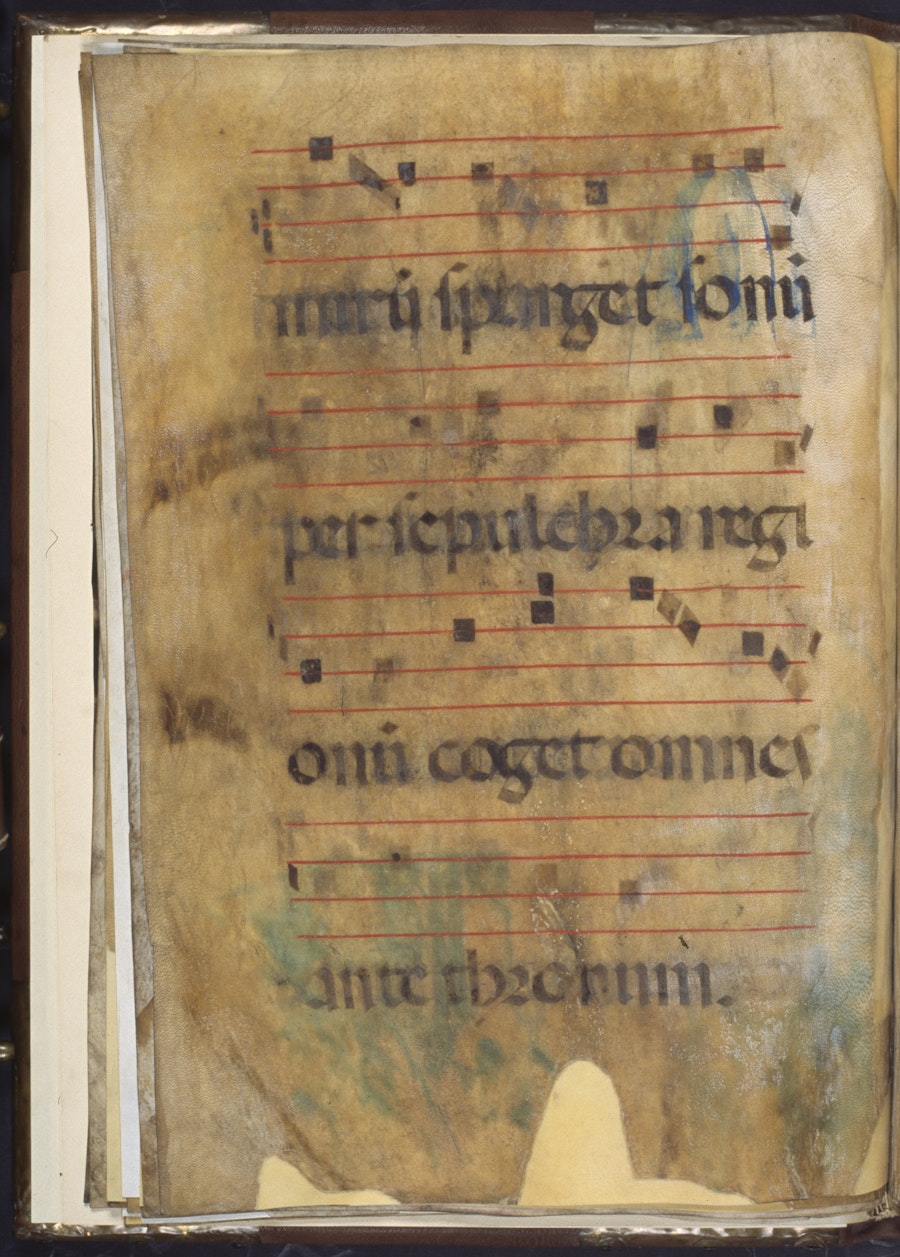 mirū sparget sonū
per sepulchra regi
onū coget omnes
ante thronum.